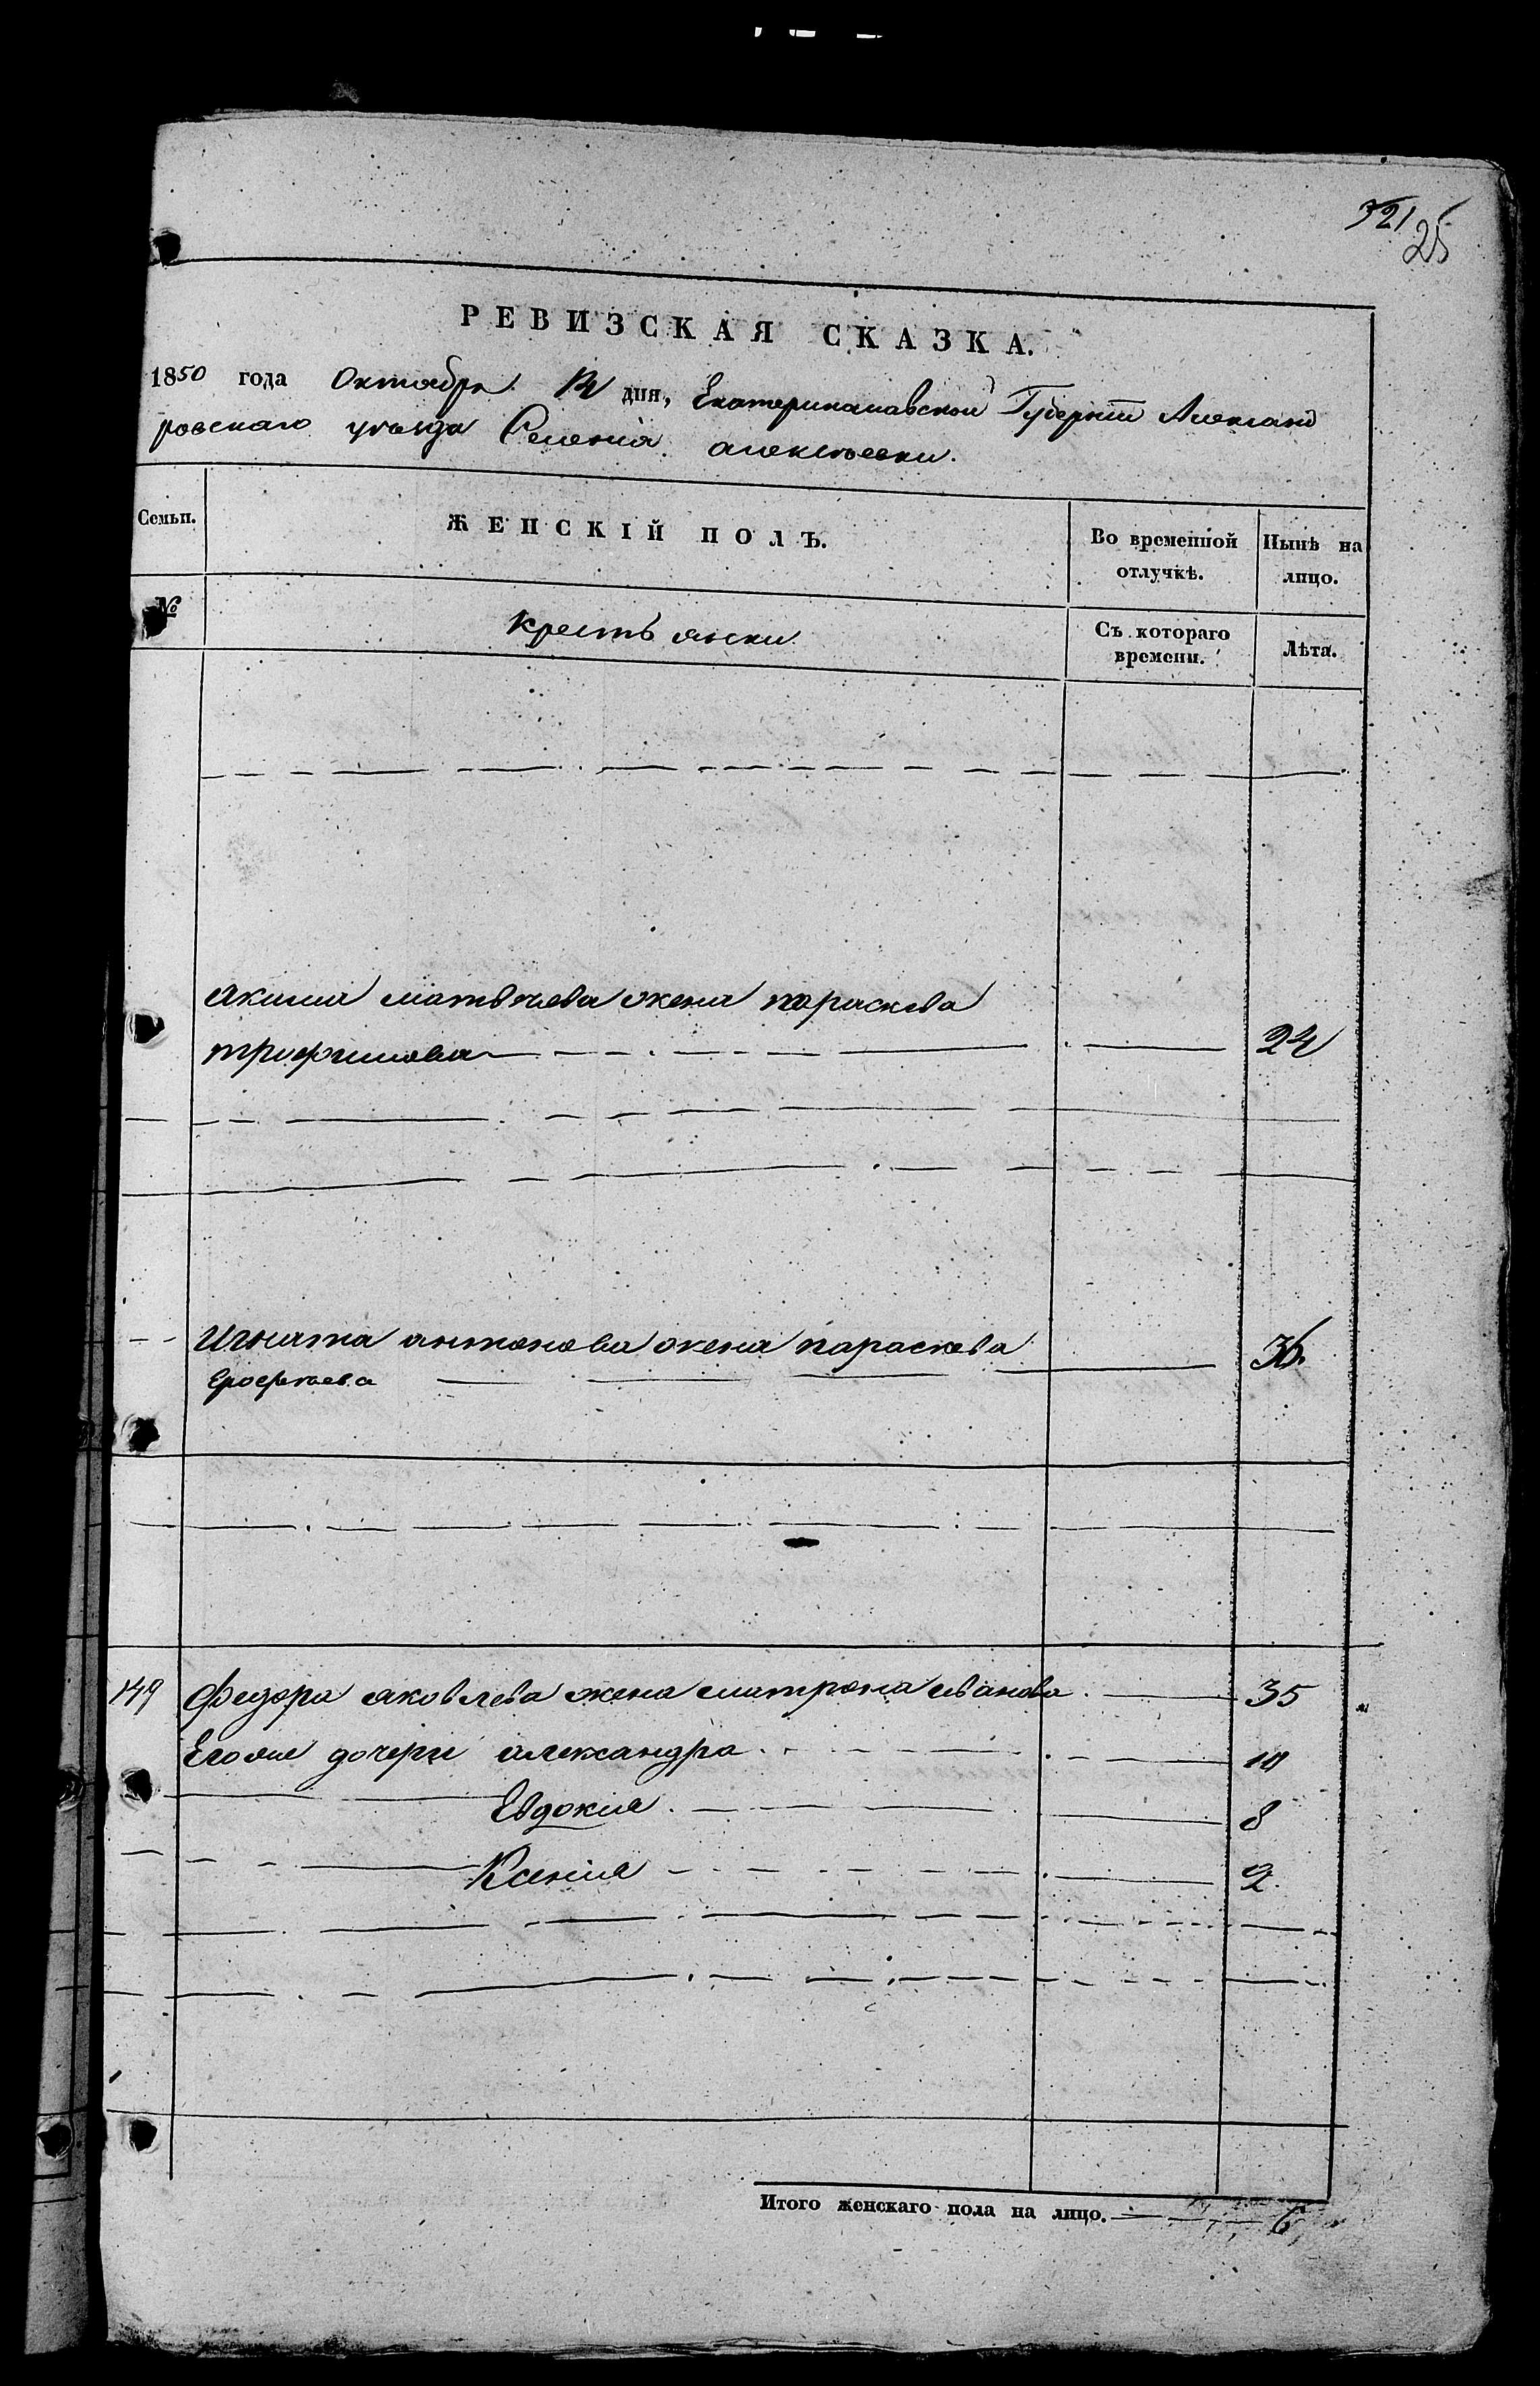 321
25
РЕВИЗСКАЯ СКАЗКА.
1850 года Октября дня, Екатеринославской Губернии Александ
ровскаго уѣзда Селенiя алексѣевки.
Семьи.
ЖЕНСКIЙ ПОЛЪ.
Во временной отлучкѣ.
Нынѣ на лицо.
№
крестьянки
Съ котораго времени.
Лѣта.
акима матвѣева жена параскева
трофимова 24
Игната антонова жена параскева
Ерофѣева
149 Федора яковлева жена матрона иванова 35
Его же дочери александра 10
Евдокия 8
Ксения 2
Итого женскаго пола на лицо. 6